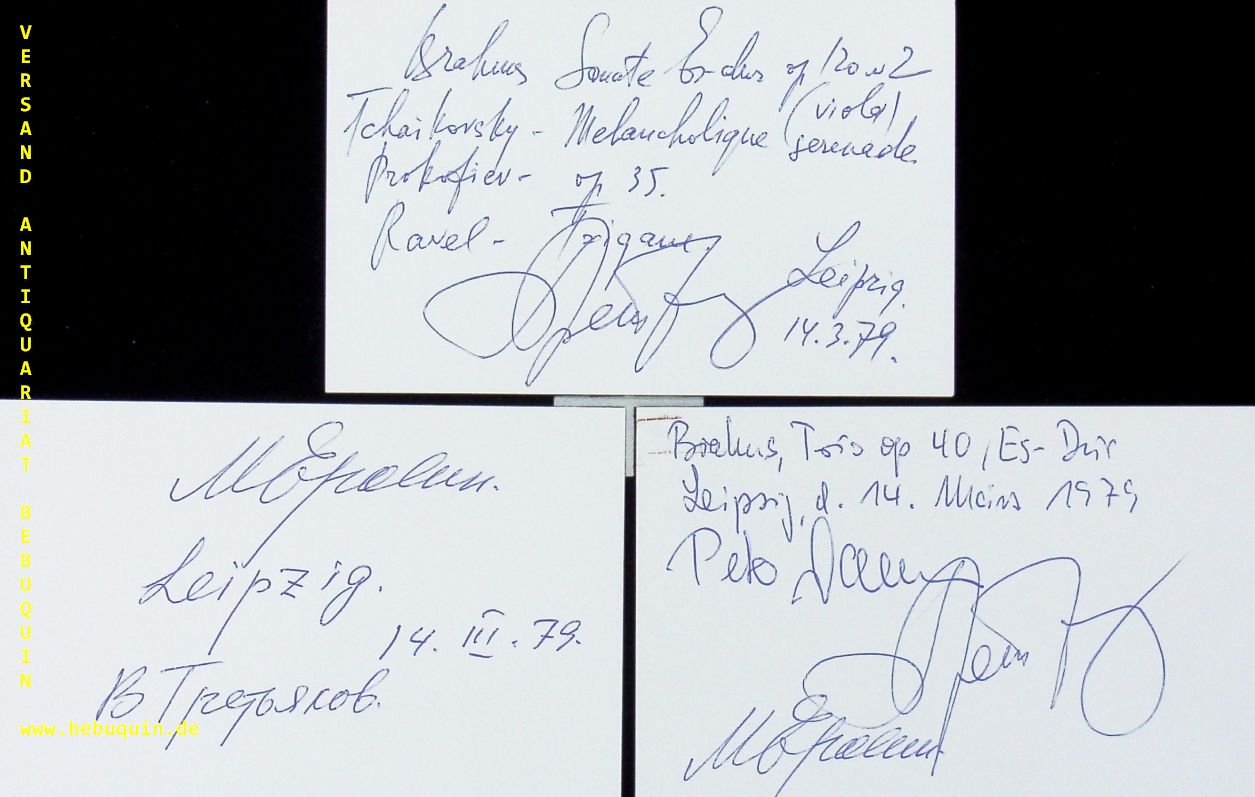 VERSAND ANTIQUARIAT BEBUQUIN
www.bebuquin.de
Brahms Sonate Es-dur op 120 N 2
(viola)
Tchaikovsky - Melancholique serenade
Prokofiev - op 35.
Ravel - Tzigane.
Leipzig.
14.3.79.
Leipzig.
14. III. 79.
В Третьяков.
Brahms, Trio op 40, Es-Dur
Leipzig, d. 14. März 1979
Peter Damm